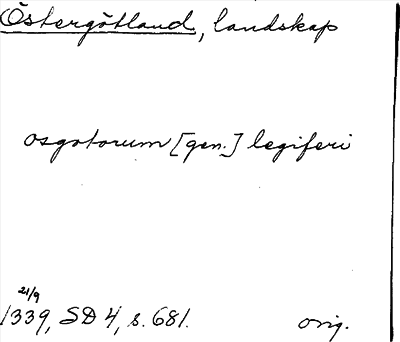 Östergötland, landskap
osgotorum [gen.] legiferi
21/9
1339, SD 4, s. 681.
orig.